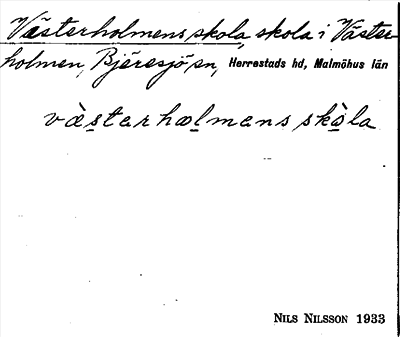 Västerholmens skola, skola i Väster-
holmen, Bjäresjö sn, Herrestads hd, Malmöhus län
væ̀sterhɷlmens skɷ̀la
NILS NILSSON 1933